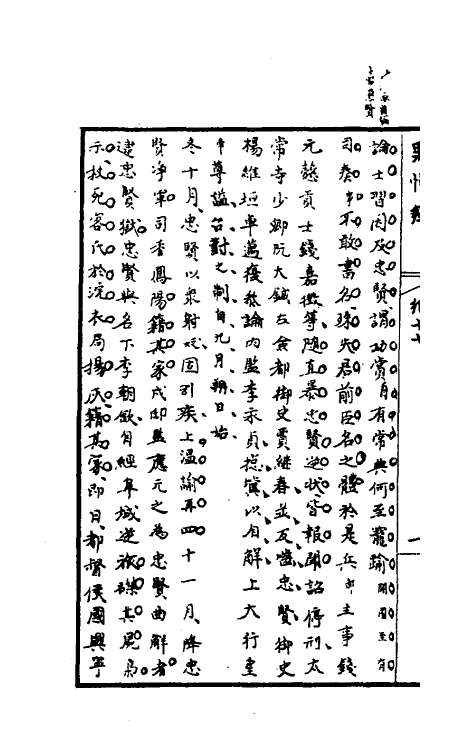 論士習因及忠賢謂功賞自有常典何至寵踰開國至有
司奏事不敢書名殊失君前臣名之體於是兵部主事錢
元慤貢士錢嘉徵等隨直暴忠賢逆狀皆報聞詔停刑太
常寺少卿阮大鋮左僉都御史賈繼春並反噬忠賢御史
楊維垣車邁復叅論內監李永貞以自解上大行皇
帝尊諡召對之制自九月朔日始
冬十月忠賢以衆射Pointing固引疾上溫諭再四十一月降忠
賢淨軍司香鳳陽籍其家戍邸監應元之為忠賢曲解者
逮忠賢獄忠賢與名下李朝欽自經阜城逆旅磔其尸梟
示杖死客氏於浣衣局揚灰籍其家即日都督侯國興寧